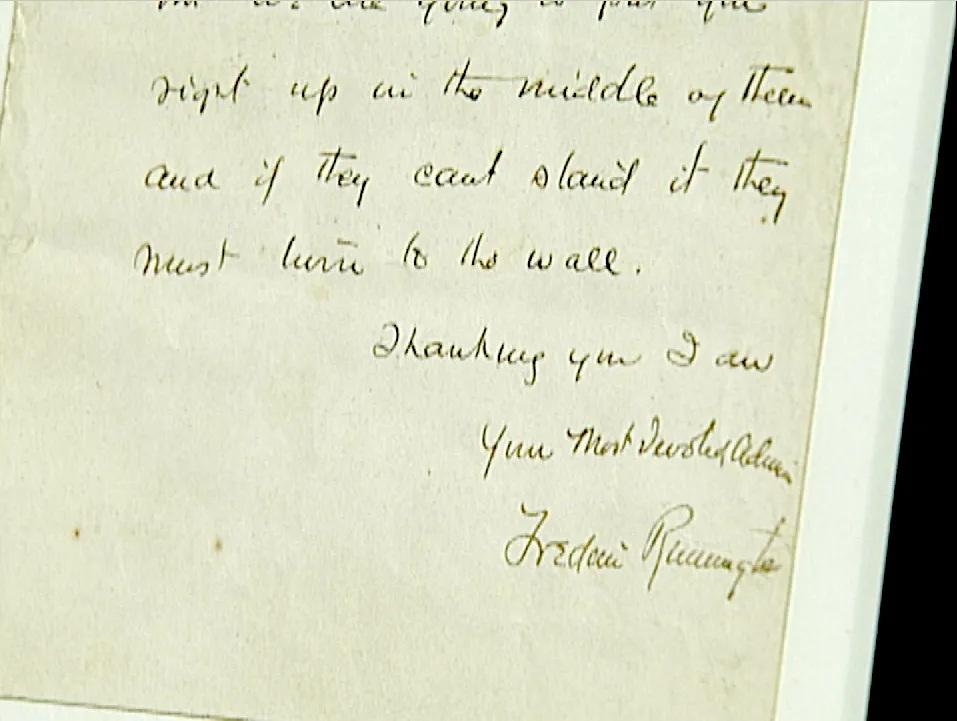 we are going to put you
right up in the middle of them
and if they cant stand it they
must turn to the wall.
Thanking you I am
Your Most Devoted Admir
Frederic Remington